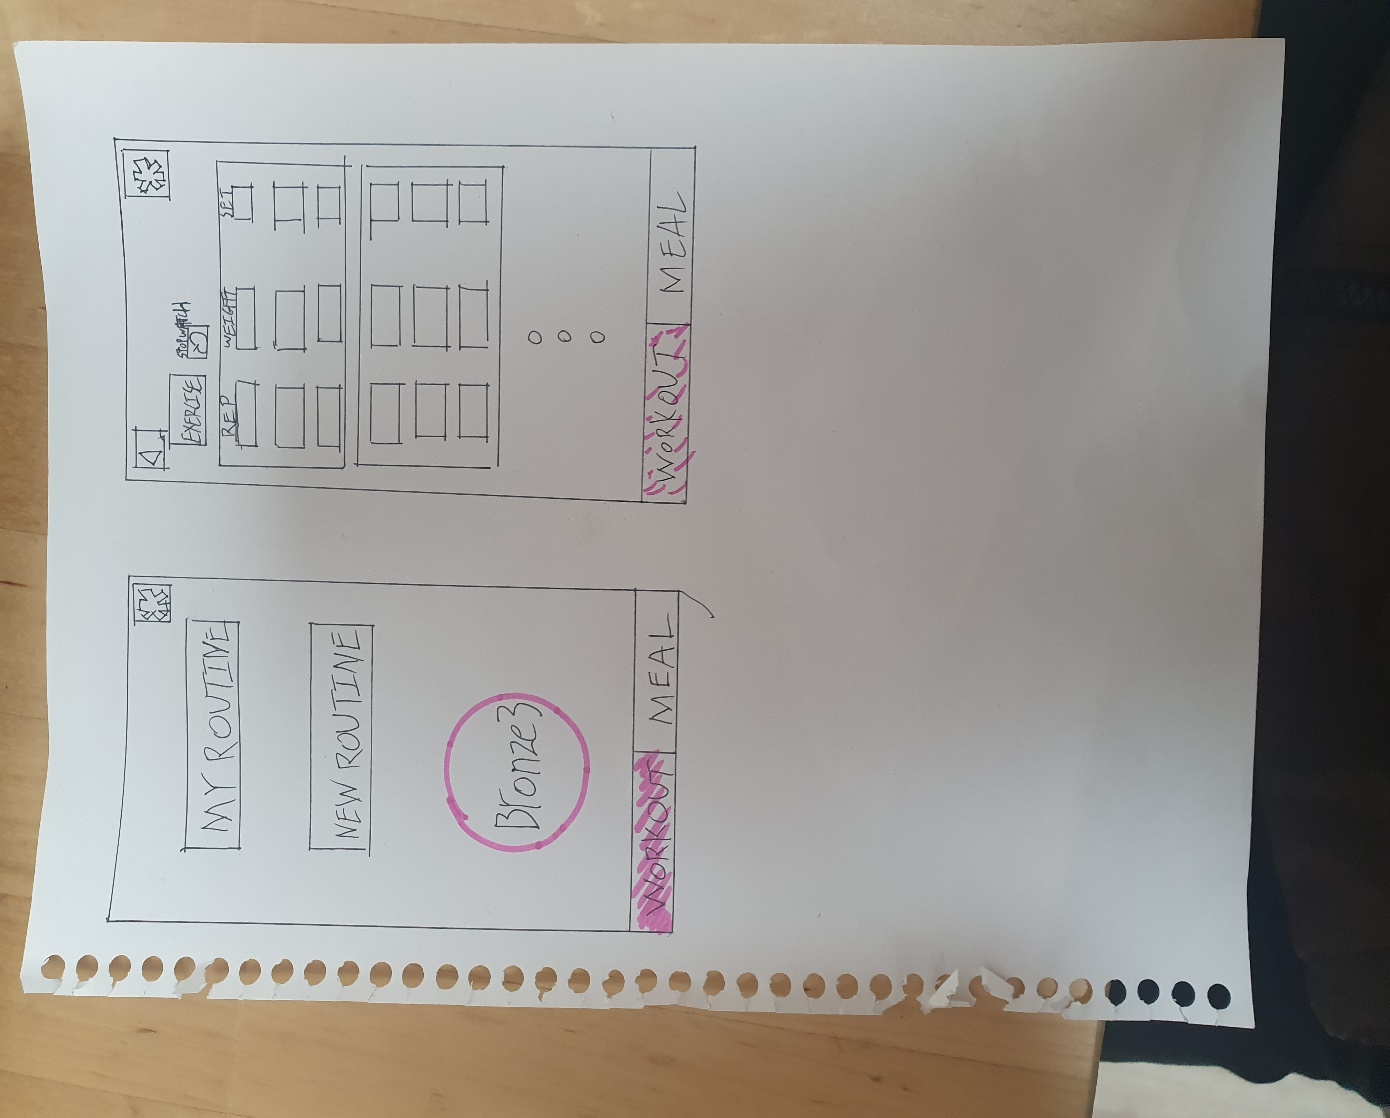 MY ROUTINE
NEW ROUTINE
Bronze3
WORKOUT MEAL
EXERCISE STOPWATCH
REP WEIGHT SET
WORKOUT MEAL